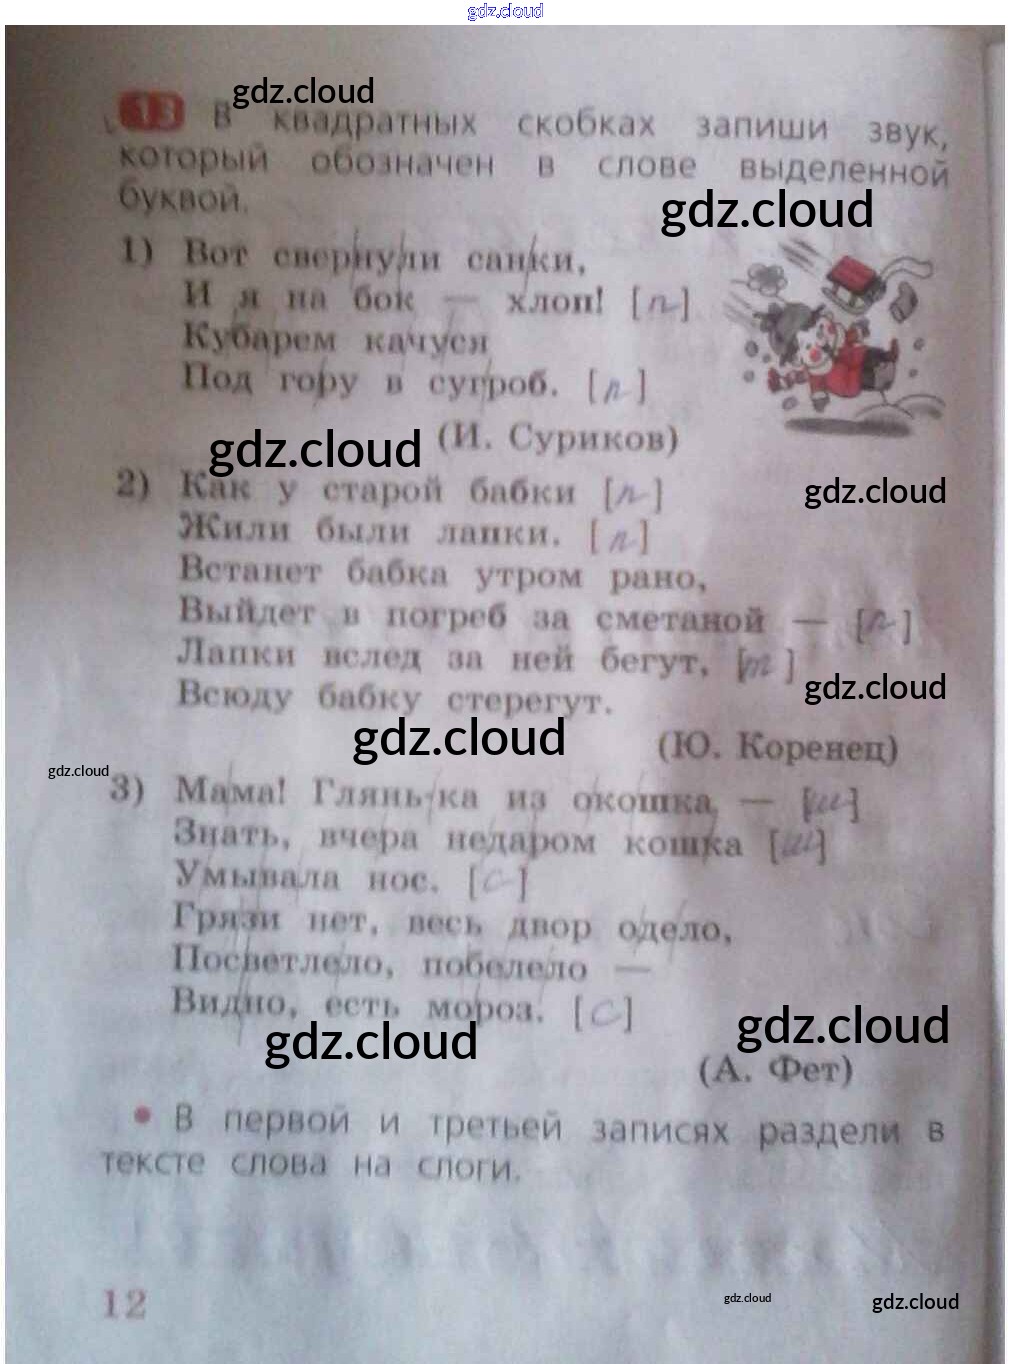 gdz.cloud
gdz.cloud
13 В квадратных скобках запиши звук,
который обозначен в слове выделенной
буквой.
gdz.cloud
1) Вот свернули санки,
И я на бок — хлоп! [п]
Кубарем качуся
Под гору в сугроб. [п]
(И. Суриков)
gdz.cloud
2) Как у старой бабки [п]
gdz.cloud
Жили были лапки. [п]
Встанет бабка утром рано,
Выйдет в погреб за сметаной — [п]
Лапки вслед за ней бегут, [т]
gdz.cloud
Всюду бабку стерегут.
gdz.cloud
(Ю. Коренец)
gdz.cloud
3) Мама! Глянь-ка из окошка — [ш]
Знать, вчера недаром кошка [ш]
Умывала нос. [с]
Грязи нет, весь двор одело,
Посветлело, побелело —
Видно, есть мороз. [с]
gdz.cloud
gdz.cloud
(А. Фет)
• В первой и третьей записях раздели в
тексте слова на слоги.
12
gdz.cloud
gdz.cloud